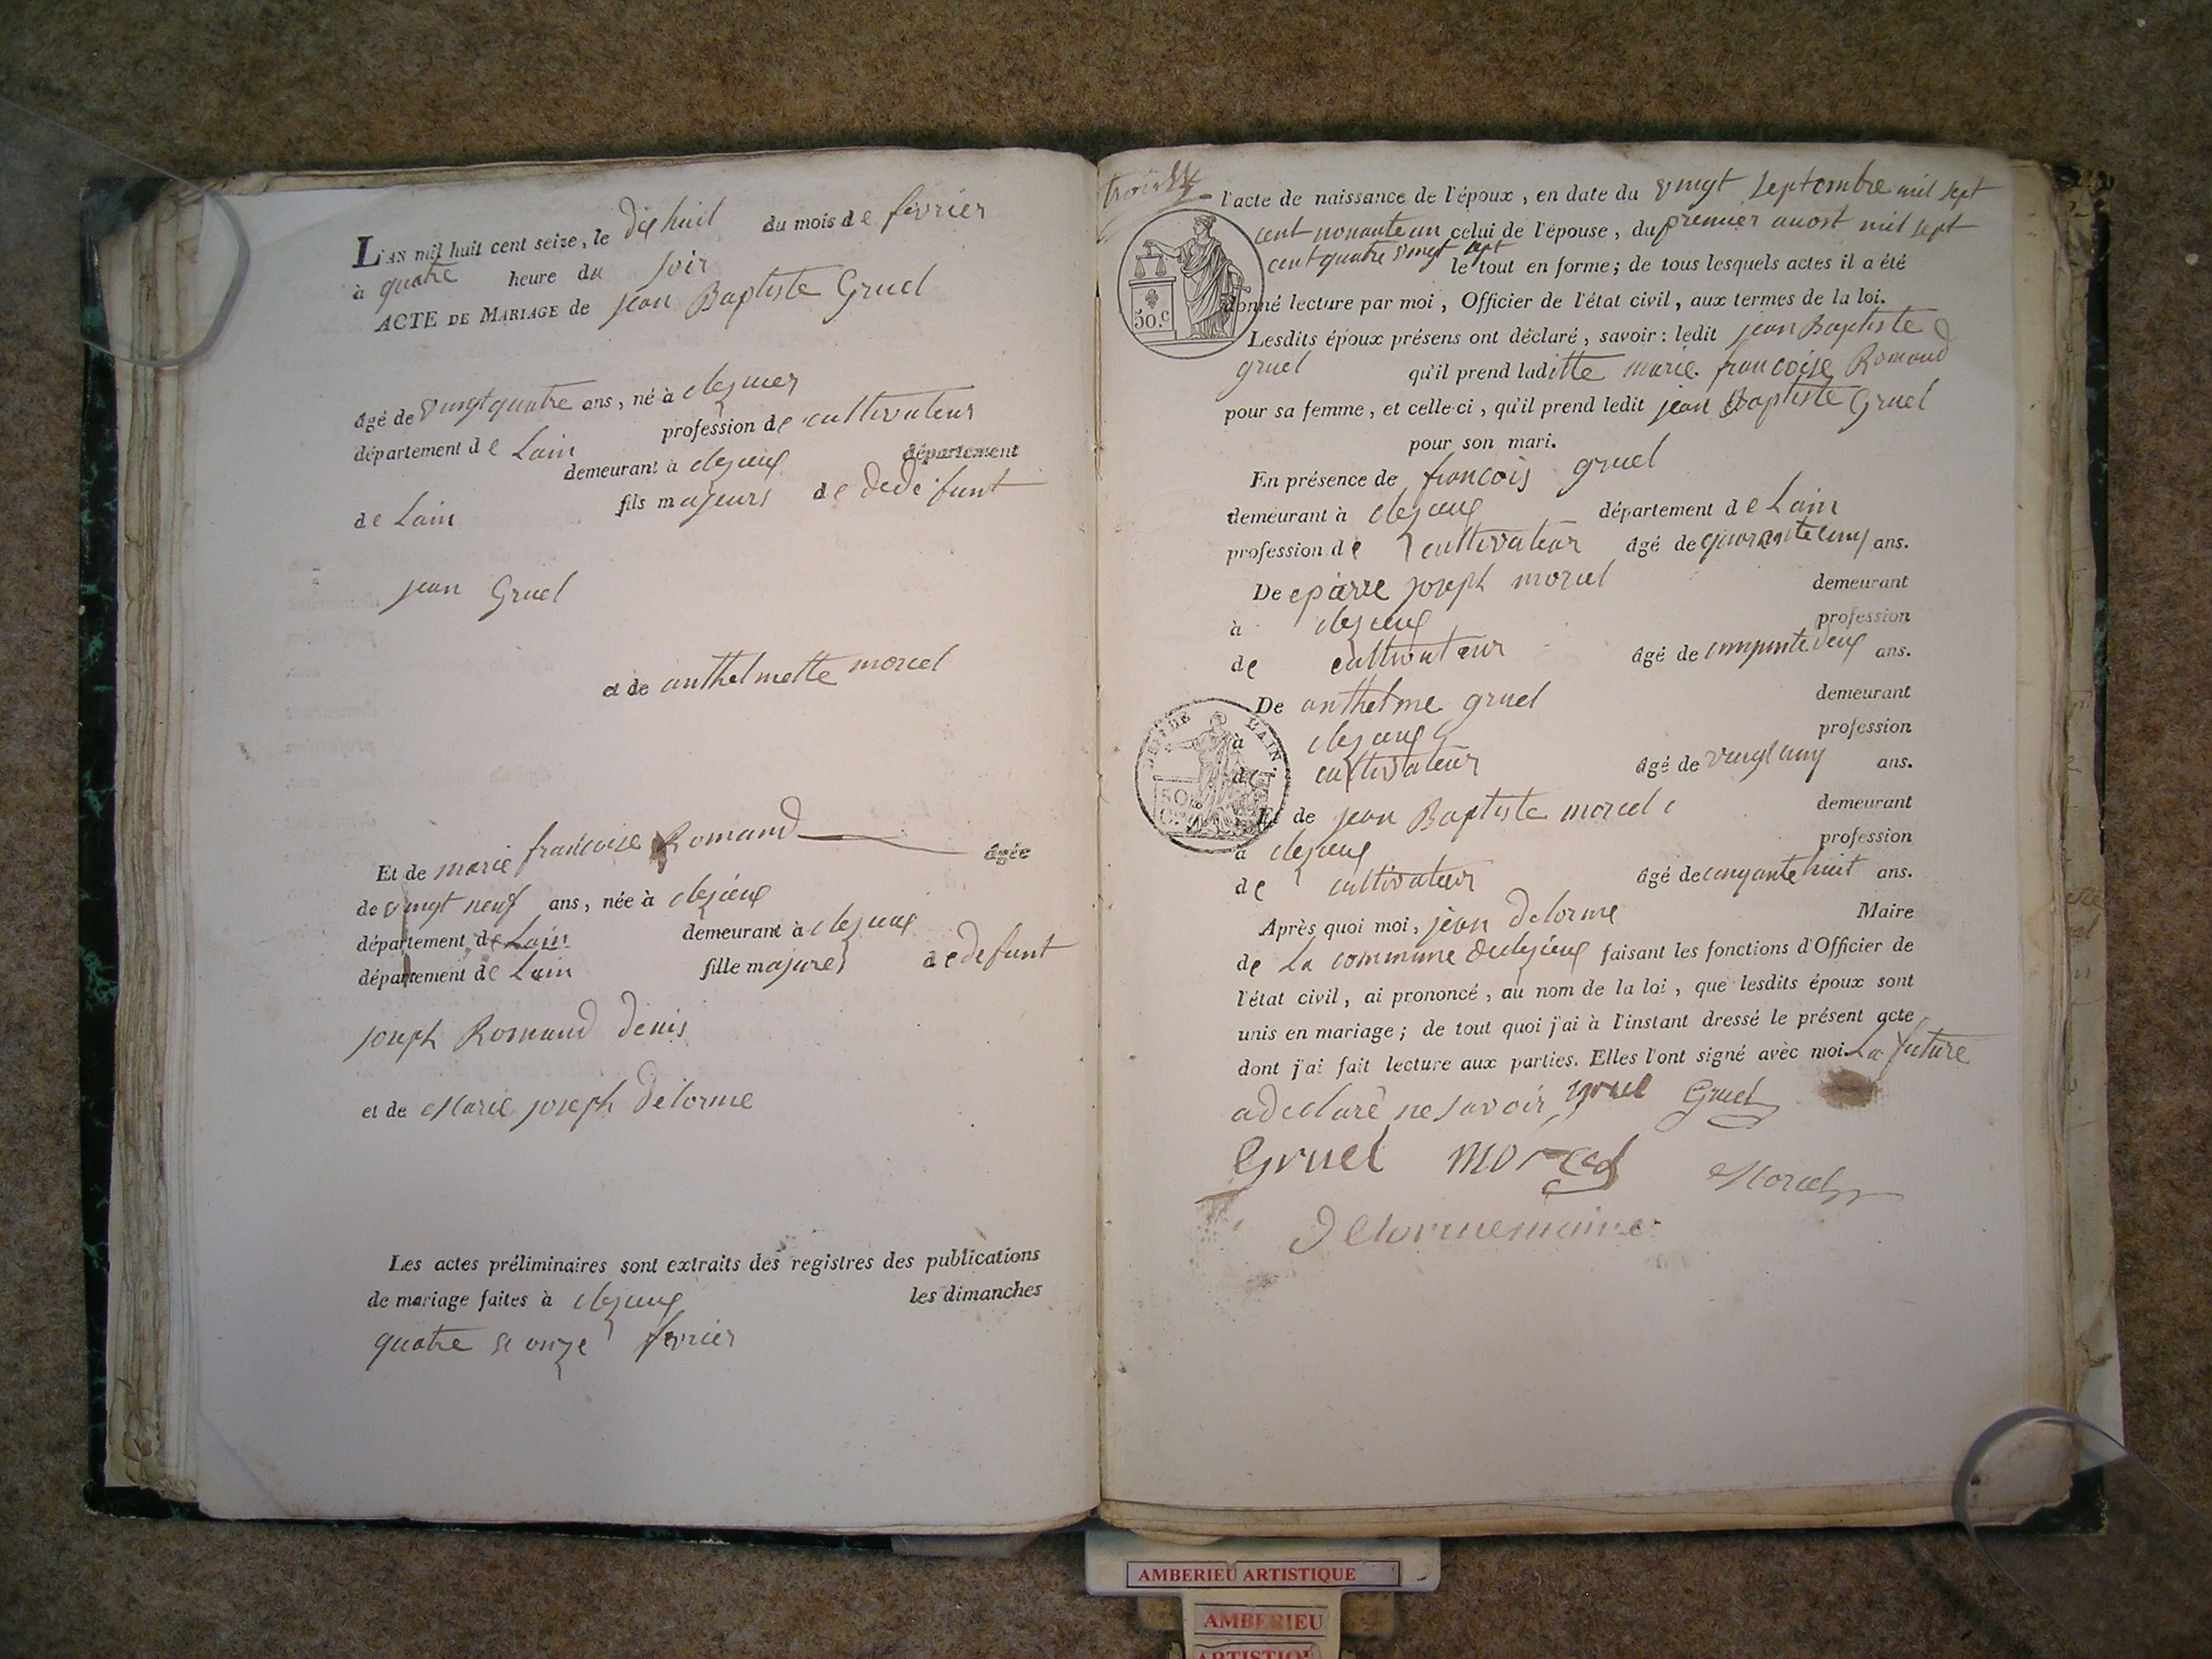 L'AN mil huit cent seize, le dix huit du mois de fevrier
à quatre heure du soir
ACTE DE MARIAGE de jean Baptiste Gruel
âgé de vingt quatre ans, né à
département de Lain profession de cultivateur
demeurant à département
de Lain fils majeurs de dedefunt
jean Gruel
et de anthelmette morcel
Et de marie francoise Romand âgée
de vingt neuf ans, née à
département de Lain demeurant à
département de Lain fille majures de defunt
joseph Romand denis
et de Marie joseph Delorme
Les actes préliminaires sont extraits des registres des publications
de mariage faites à les dimanches
quatre et onze fevrier
l'acte de naissance de l'époux, en date du vingt septembre mil sept
cent nonante un celui de l'épouse, du premier auost mil sept
cent quatre vingt sept le tout en forme; de tous lesquels actes il a été
donné lecture par moi, Officier de l'état civil, aux termes de la loi.
50.c
Lesdits époux présens ont déclaré, savoir: ledit jean Baptiste
gruel qu'il prend laditte marie francoise Romand
pour sa femme, et celle-ci, qu'il prend ledit jean Baptiste Gruel
pour son mari.
En présence de francois gruel
demeurant à département de Lain
profession de cultivateur âgé de quarante cinq ans.
De joseph morcel demeurant
à profession
de cultivateur âgé de cinquante deux ans.
De anthelme gruel demeurant
à profession
de cultivateur âgé de vingt cinq ans.
DE L'AIN.
Et de jean Baptiste morcel demeurant
à profession
de cultivateur âgé de cinquante huit ans.
Après quoi moi, jean delorme Maire
de La commune faisant les fonctions d'Officier de
l'état civil, ai prononcé, au nom de la loi, que lesdits époux sont
unis en mariage; de tout quoi j'ai à l'instant dressé le présent acte
dont j'ai fait lecture aux parties. Elles l'ont signé avec moi La future
a declaré ne savoir gruel Gruel
Gruel morcel Morcel
Delorme maire
AMBERIEU ARTISTIQUE
AMBERIEU
ARTISTIQUE